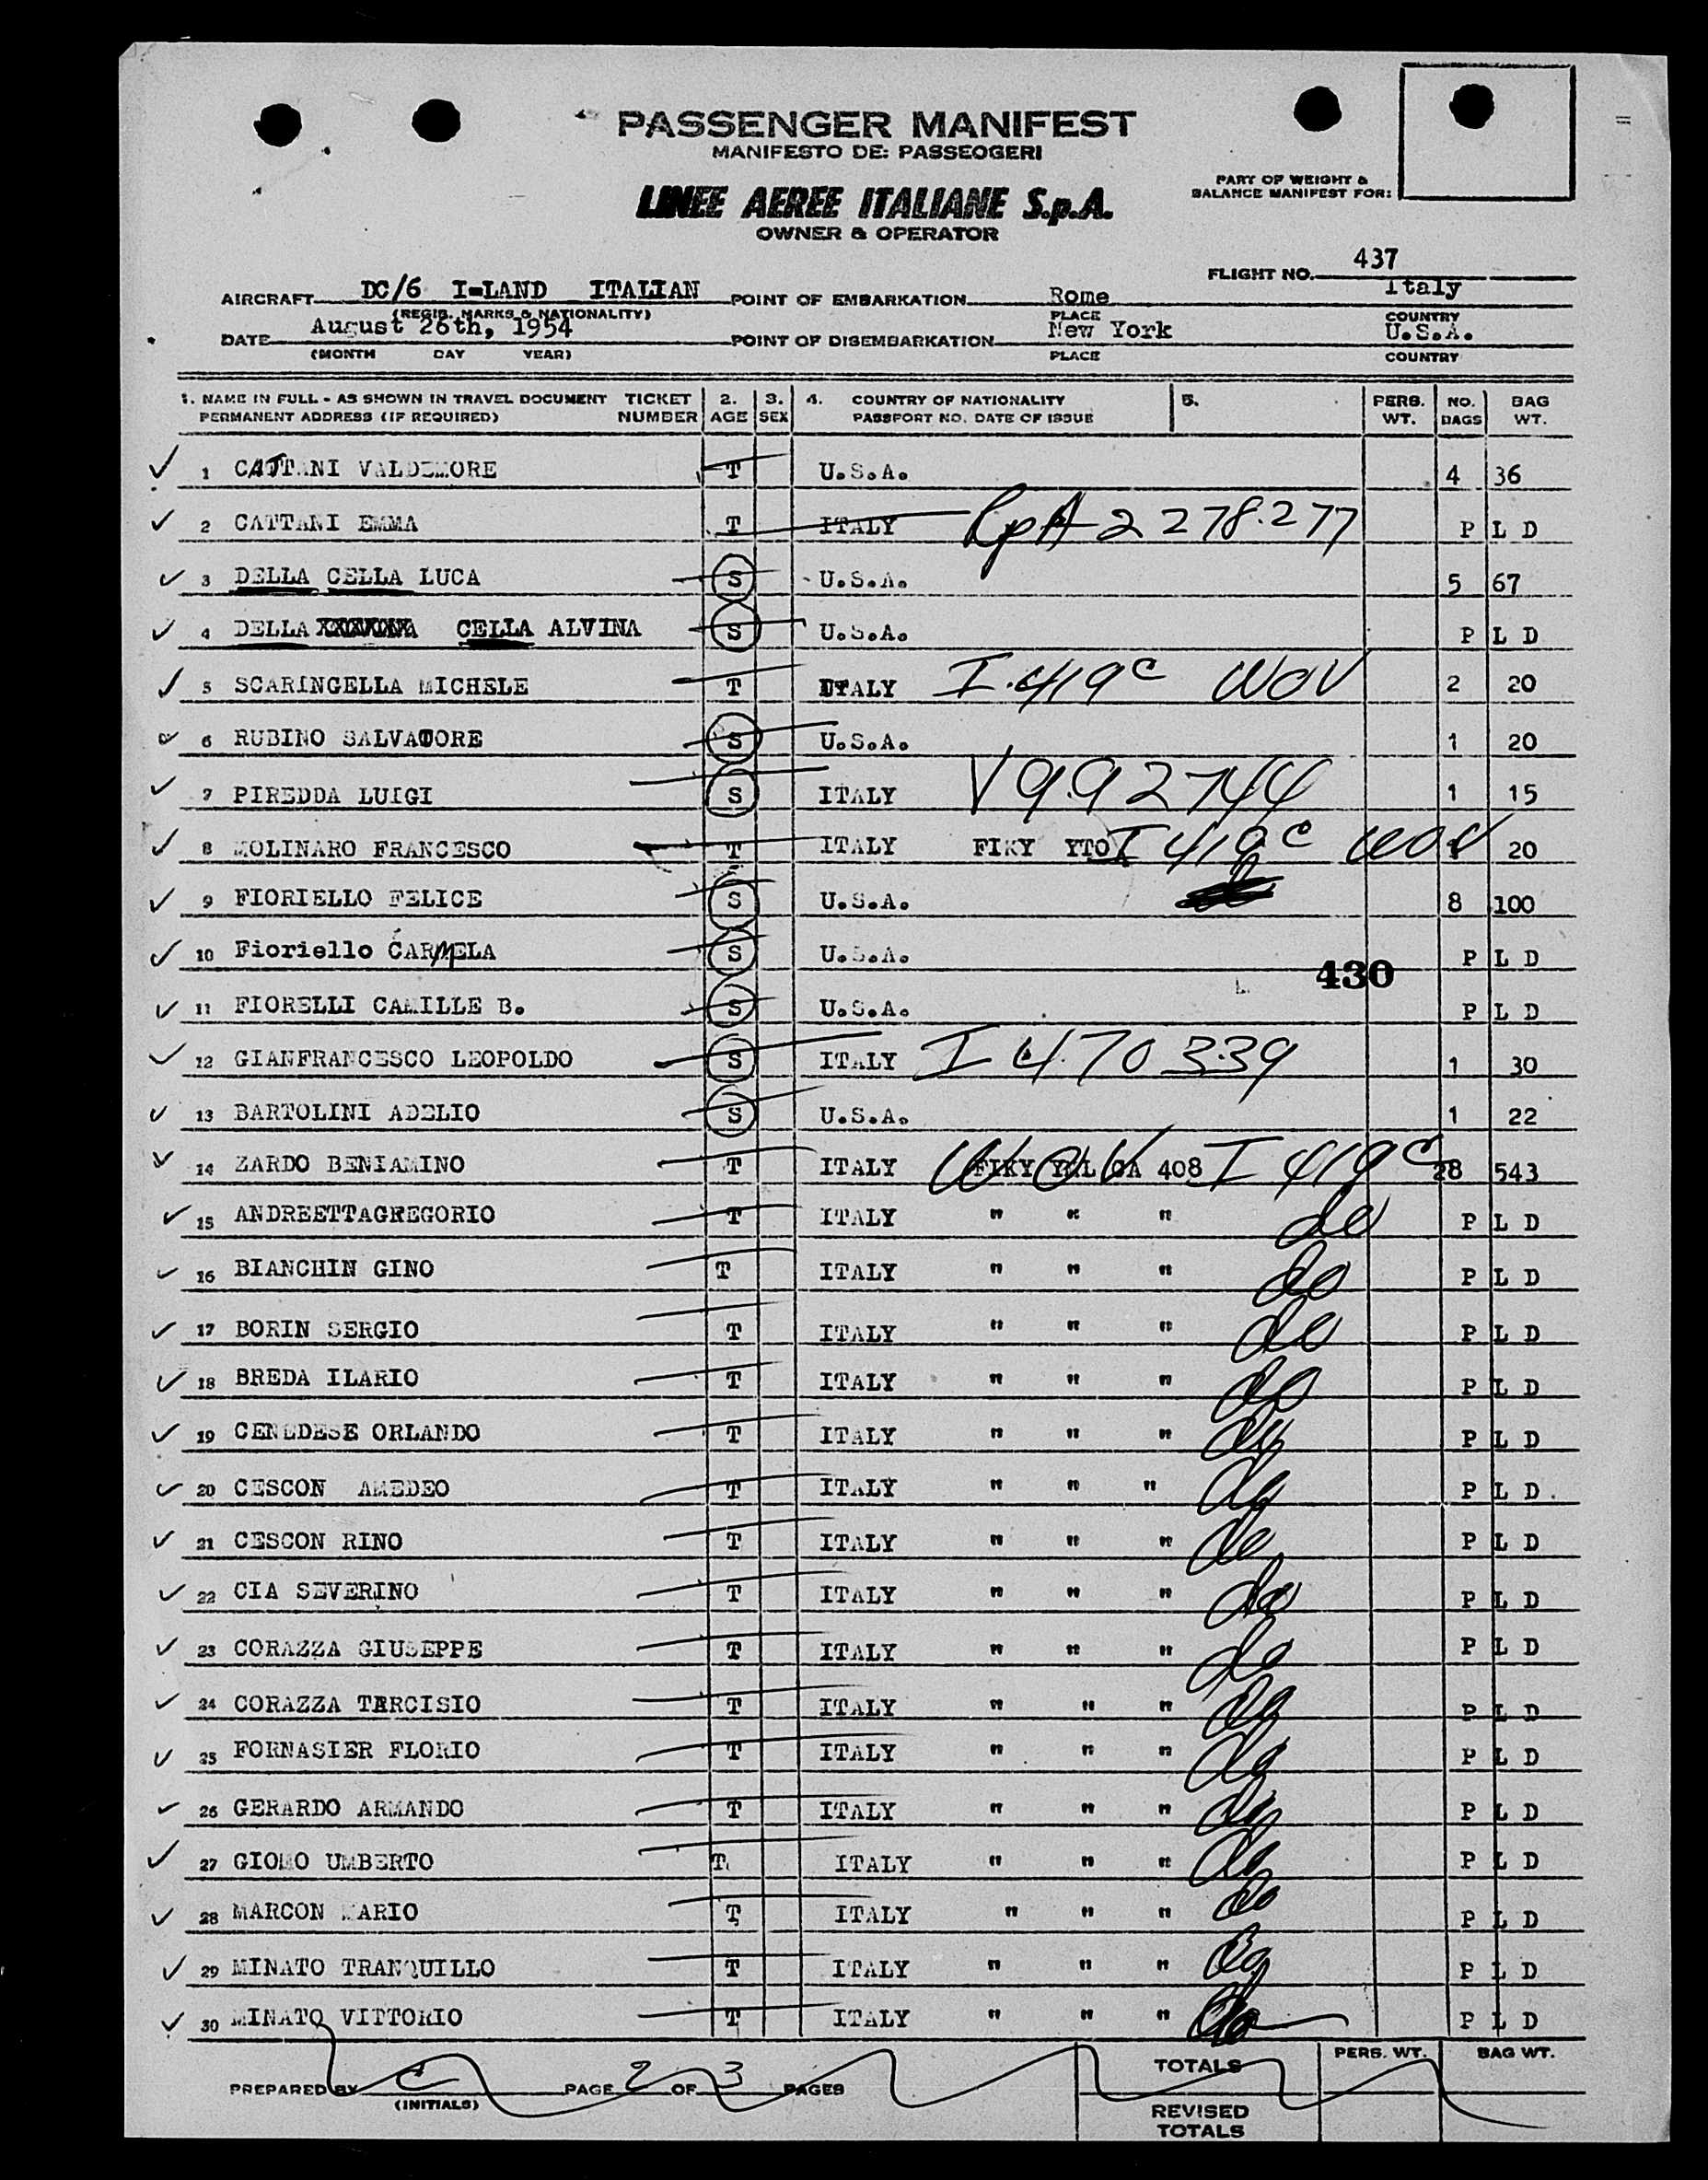 PASSENGER MANIFEST
MANIFESTO DE: PASSEOGERI
LINEE AEREE ITALIANE S.p.A.
OWNER & OPERATOR
PART OF WEIGHT &
BALANCE MANIFEST FOR:
FLIGHT NO. 437
AIRCRAFT DC/6 I-LAND ITALIAN POINT OF EMBARKATION Rome Italy
(REGIS. MARKS & NATIONALITY) PLACE COUNTRY
DATE August 26th, 1954 POINT OF DISEMBARKATION New York U.S.A.
(MONTH DAY YEAR) PLACE COUNTRY
1. NAME IN FULL - AS SHOWN IN TRAVEL DOCUMENT TICKET 2. 3. 4. COUNTRY OF NATIONALITY 5. PERS. NO. BAG
PERMANENT ADDRESS (IF REQUIRED) NUMBER AGE SEX PASSPORT NO. DATE OF ISSUE WT. BAGS WT.
1 CATTANI VALDEMORE T U.S.A. 4 36
2 CATTANI EMMA T ITALY RpA 2 278.277 P L D
3 DELLA CELLA LUCA S U.S.A. 5 67
4 DELLA CELLA ALVINA S U.S.A. P L D
5 SCARINGELLA MICHELE T ITALY I.419c WOV 2 20
6 RUBINO SALVATORE S U.S.A. 1 20
7 PIREDDA LUIGI S ITALY V992744 1 15
8 MOLINARO FRANCESCO T ITALY FIKY YTO I 419c WOV 20
9 FIORIELLO FELICE S U.S.A. 8 100
10 Fioriello CARMELA S U.S.A. P L D
430
11 FIORELLI CAMILLE B. S U.S.A. P L D
12 GIANFRANCESCO LEOPOLDO S ITALY I 470339 1 30
13 BARTOLINI ADELIO S U.S.A. 1 22
14 ZARDO BENIAMINO T ITALY WOV FIKY CA 408 I 419c 28 543
15 ANDREETTAGREGORIO T ITALY " " " do P L D
16 BIANCHIN GINO T ITALY " " " do P L D
17 BORIN SERGIO T ITALY " " " do P L D
18 BREDA ILARIO T ITALY " " " do P L D
19 CENEDESE ORLANDO T ITALY " " " do P L D
20 CESCON AMEDEO T ITALY " " " do P L D.
21 CESCON RINO T ITALY " " " do P L D
22 CIA SEVERINO T ITALY " " " do P L D
23 CORAZZA GIUSEPPE T ITALY " " " do P L D
24 CORAZZA TARCISIO T ITALY " " " do P L D
25 FORNASIER FLORIO T ITALY " " " do P L D
26 GERARDO ARMANDO T ITALY " " " do P L D
27 GIOMO UMBERTO T ITALY " " " do P L D
28 MARCON MARIO T ITALY " " " do P L D
29 MINATO TRANQUILLO T ITALY " " " do P L D
30 MINATO VITTORIO T ITALY " " " do P L D
PREPARED BY PAGE 2 OF 3 PAGES TOTALS PERS. WT. BAG WT.
(INITIALS)
REVISED
TOTALS